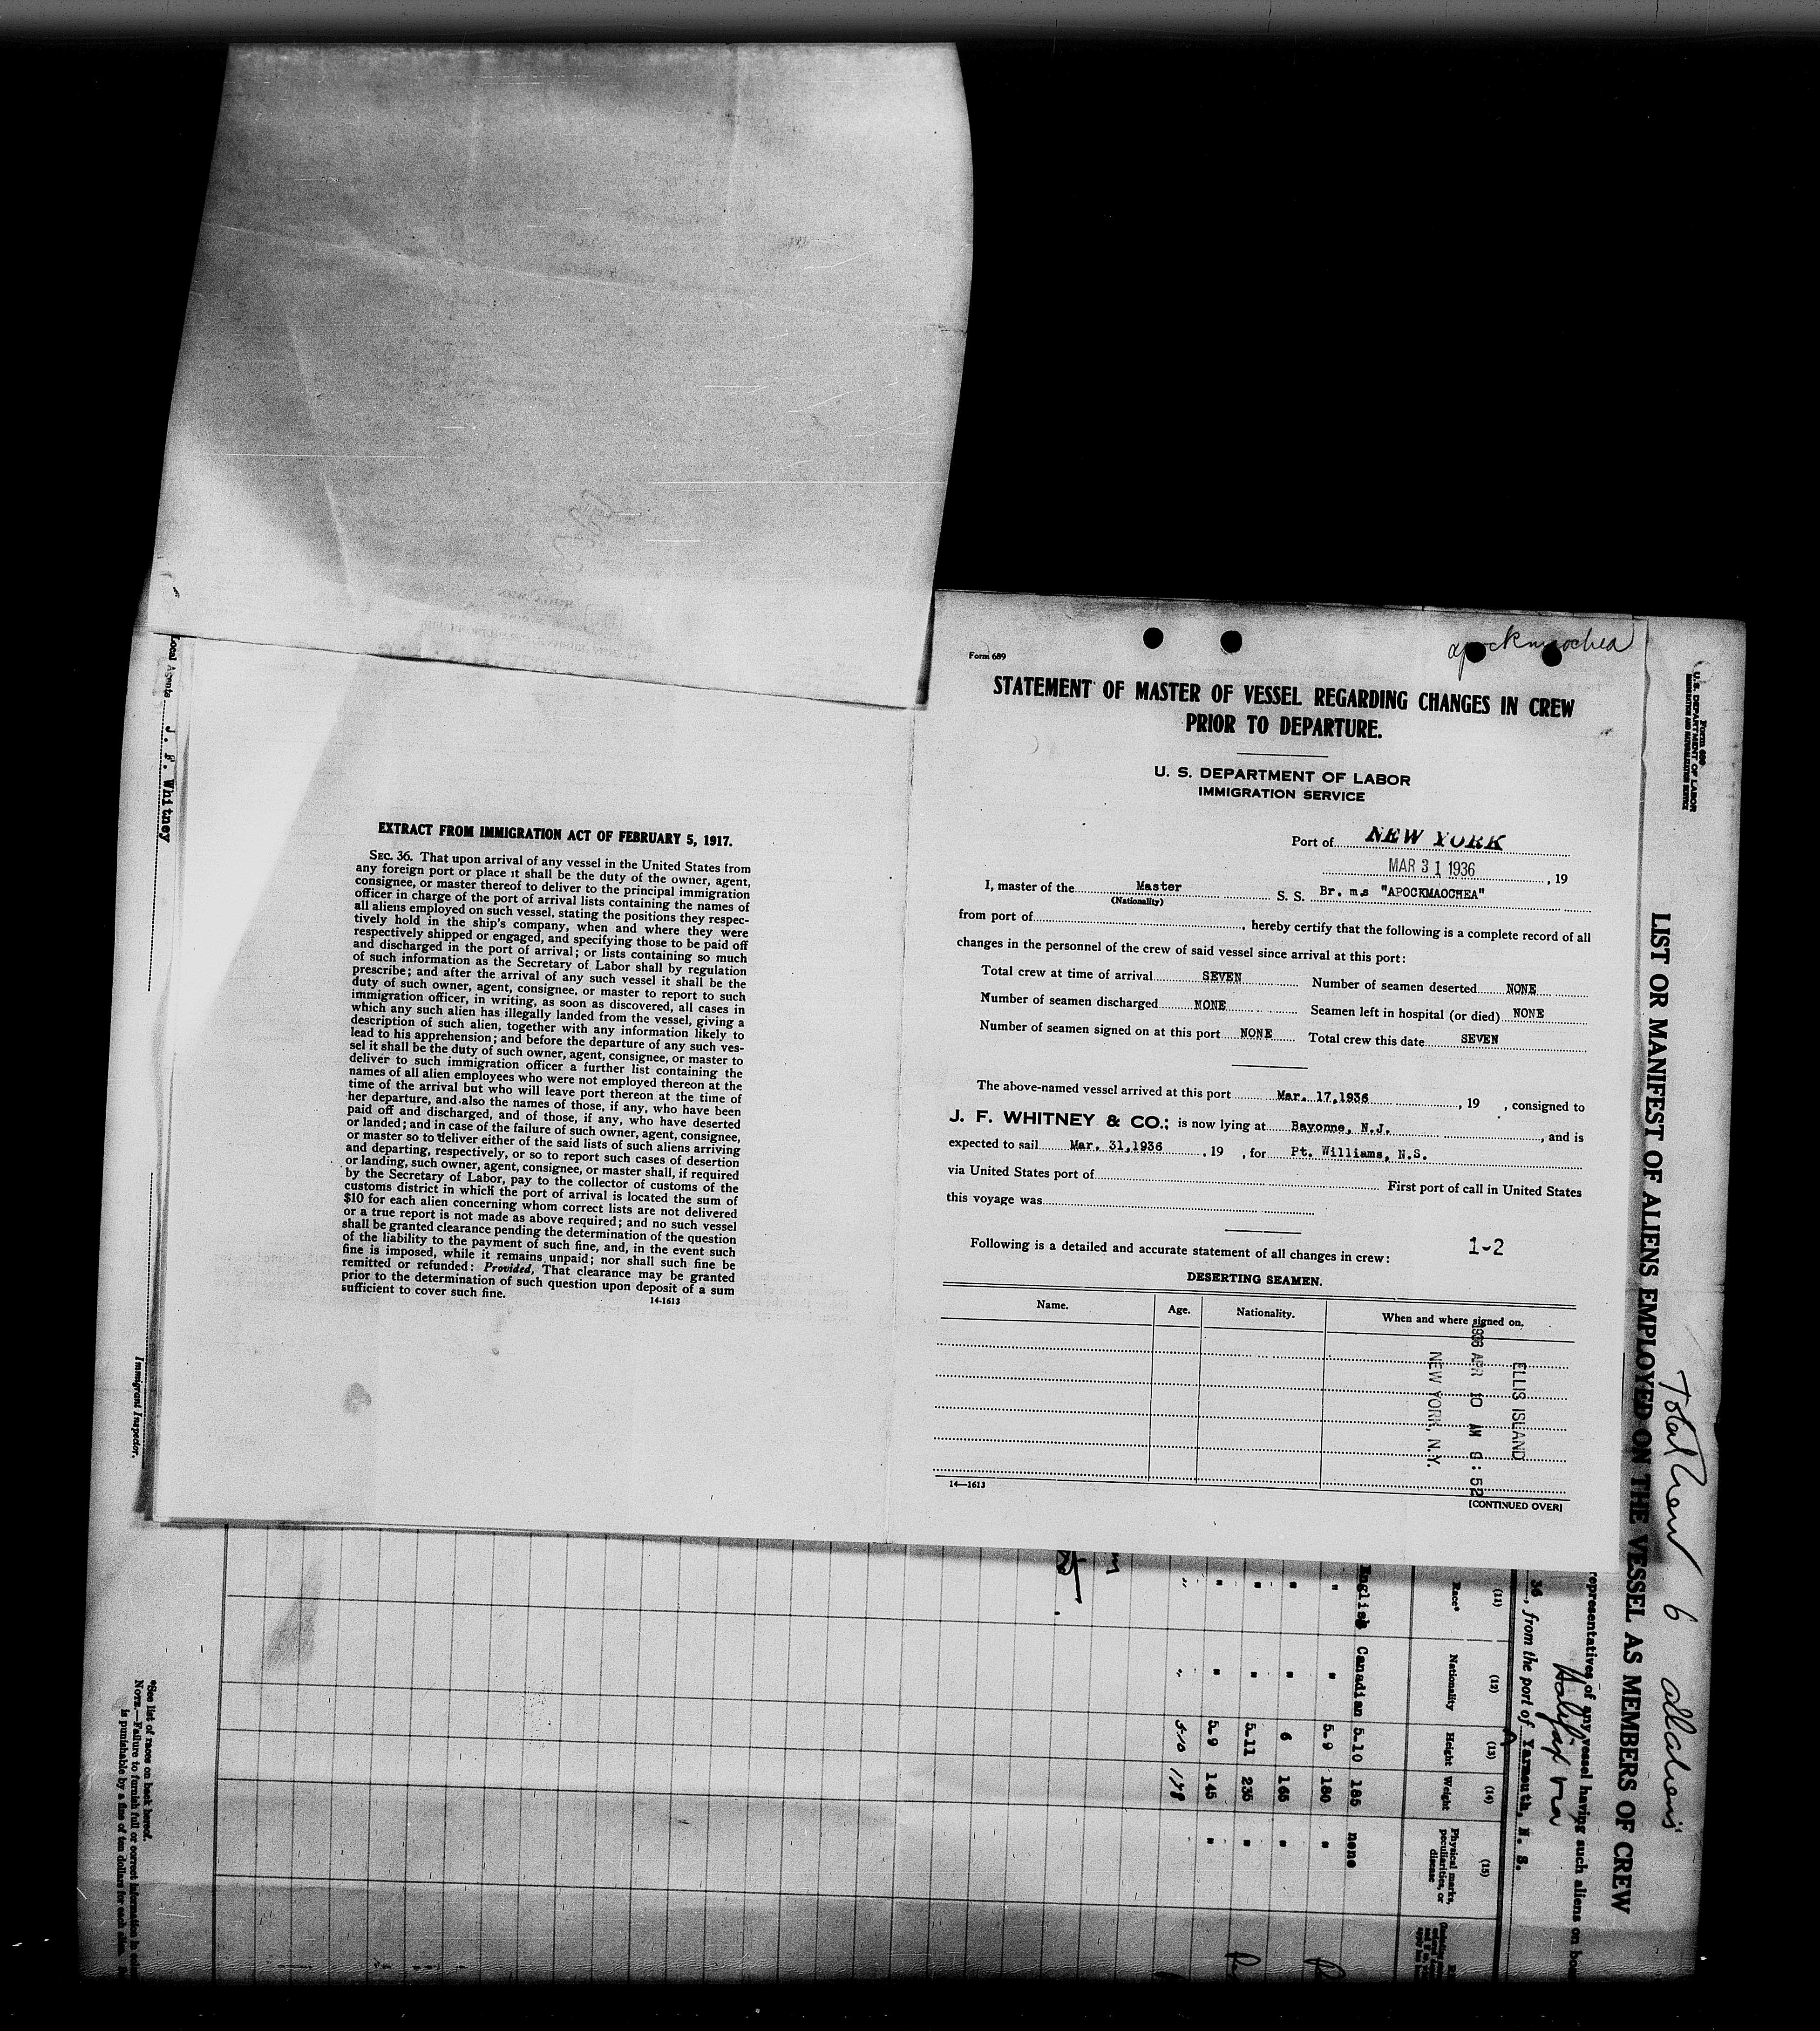 apockmaochea
Form 689
STATEMENT OF MASTER OF VESSEL REGARDING CHANGES IN CREW
PRIOR TO DEPARTURE.
U. S. DEPARTMENT OF LABOR
IMMIGRATION SERVICE
Port of NEW YORK
MAR 31 1936, 19
I, master of the Master S. S. Br. m.s "APOCKMAOCHEA"
(Nationality)
from port of, hereby certify that the following is a complete record of all
changes in the personnel of the crew of said vessel since arrival at this port:
Total crew at time of arrival SEVEN Number of seamen deserted NONE
Number of seamen discharged NONE Seamen left in hospital (or died) NONE
Number of seamen signed on at this port NONE Total crew this date SEVEN
The above-named vessel arrived at this port Mar. 17,1936, 19 , consigned to
J. F. WHITNEY & CO.; is now lying at Bayonne, N.J., and is
expected to sail Mar. 31,1936, 19 , for Pt. Williams, N.S.
via United States port of First port of call in United States
this voyage was
Following is a detailed and accurate statement of all changes in crew: 1-2
DESERTING SEAMEN.
Name. Age. Nationality. When and where signed on.
ELLIS ISLAND
1936 APR 10 AM 8:52
NEW YORK, N.Y.
14—1613
[CONTINUED OVER]
EXTRACT FROM IMMIGRATION ACT OF FEBRUARY 5, 1917.
SEC. 36. That upon arrival of any vessel in the United States from
any foreign port or place it shall be the duty of the owner, agent,
consignee, or master thereof to deliver to the principal immigration
officer in charge of the port of arrival lists containing the names of
all aliens employed on such vessel, stating the positions they respec-
tively hold in the ship's company, when and where they were
respectively shipped or engaged, and specifying those to be paid off
and discharged in the port of arrival; or lists containing so much
of such information as the Secretary of Labor shall by regulation
prescribe; and after the arrival of any such vessel it shall be the
duty of such owner, agent, consignee, or master to report to such
immigration officer, in writing, as soon as discovered, all cases in
which any such alien has illegally landed from the vessel, giving a
description of such alien, together with any information likely to
lead to his apprehension; and before the departure of any such ves-
sel it shall be the duty of such owner, agent, consignee, or master to
deliver to such immigration officer a further list containing the
names of all alien employees who were not employed thereon at the
time of the arrival but who will leave port thereon at the time of
her departure, and also the names of those, if any, who have been
paid off and discharged, and of those, if any, who have deserted
or landed; and in case of the failure of such owner, agent, consignee,
or master so to deliver either of the said lists of such aliens arriving
and departing, respectively, or so to report such cases of desertion
or landing, such owner, agent, consignee, or master shall, if required
by the Secretary of Labor, pay to the collector of customs of the
customs district in which the port of arrival is located the sum of
$10 for each alien concerning whom correct lists are not delivered
or a true report is not made as above required; and no such vessel
shall be granted clearance pending the determination of the question
of the liability to the payment of such fine, and, in the event such
fine is imposed, while it remains unpaid; nor shall such fine be
remitted or refunded: Provided, That clearance may be granted
prior to the determination of such question upon deposit of a sum
sufficient to cover such fine.
14-1613
Form 689
U. S. DEPARTMENT OF LABOR
Total Crew 6 all aliens
LIST OR MANIFEST OF ALIENS EMPLOYED ON THE VESSEL AS MEMBERS OF CREW
representatives of any vessel having such aliens on
Halifax via
36, from the port of Yarmouth, N. S.
(11) (12) (13) (14) (15)
Race* Nationality Height Weight Physical marks, peculiarities, or disease
English Canadian 5-10 185 none
" " 5-9 180 "
" " 6 165 "
" " 5-11 235 "
" " 5-9 145 "
" " 5-10 178
Local Agents J. F. Whitney
Immigrant Inspector.
*See list of races on back hereof.
NOTE.—Failure to furnish full or correct information in
is punishable by a fine of ten dollars for each alien.